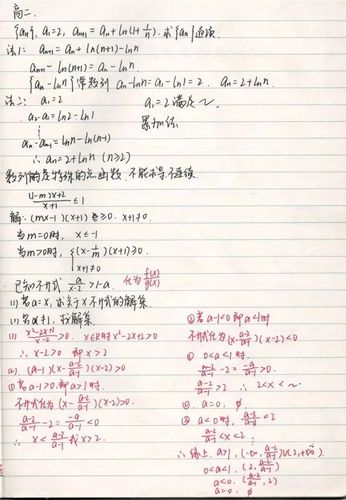 高二.
{an}, a₁=2, aₙ₊₁=aₙ+ln(1+1/n). 求{an}通项.
法1: aₙ₊₁=aₙ+ln(n+1)-lnn
aₙ₊₁-ln(n+1)=aₙ-lnn
{aₙ-lnn}常数列 aₙ-lnn=a₁-ln1=2. aₙ=2+lnn.
法二: a₁=2
a₁=2满足~.
a₂-a₁=ln2-ln1
累加法
⋮
aₙ-aₙ₋₁=lnn-ln(n-1)
∴ aₙ=2+lnn (n≥2)
数列的是特殊的函数. 不能求导.不连续.
((1-m)x+2)/(x+1)≤1
解: (mx-1)(x+1)≥0. x+1≠0.
当m=0时, x≤-1
当m>0时, {(x-1/m)(x+1)≥0.
x+1≠0
已知不等式 a/(x-2)>1-a. 化为f(x)/g(x)
(1) 若a=x, 求关于x不等式的解集.
(2) 若a≠1, 求解集.
(1) (x²-2x+2)/(x-2)>0. x∈R时x²-2x+2>0
∴ x-2>0 即x>2
(2). (a-1)(x-(a-2)/(a-1))(x-2)>0
①若a-1>0.即a>1时.
不等式化为(x-(a-2)/(a-1))(x-2)>0.
(a-2)/(a-1)-2=-a/(a-1)<0
∴ x<(a-2)/(a-1)或x>2.
②若a-1<0即a<1时
不等式化为(x-(a-2)/(a-1))(x-2)<0
① 0<a<1时,
(a-2)/(a-1)-2=-a/(a-1)>0.
(a-2)/(a-1)>2 ∴ 2<x<~.
② a=0. ∅
③ a<0时, (a-2)/(a-1)<2
(a-2)/(a-1)<x<2.
∴综上. a>1, (-∞,(a-2)/(a-1))∪(2,+∞).
0<a<1, (2,(a-2)/(a-1))
a<0, ((a-2)/(a-1),2)
a=0, ∅